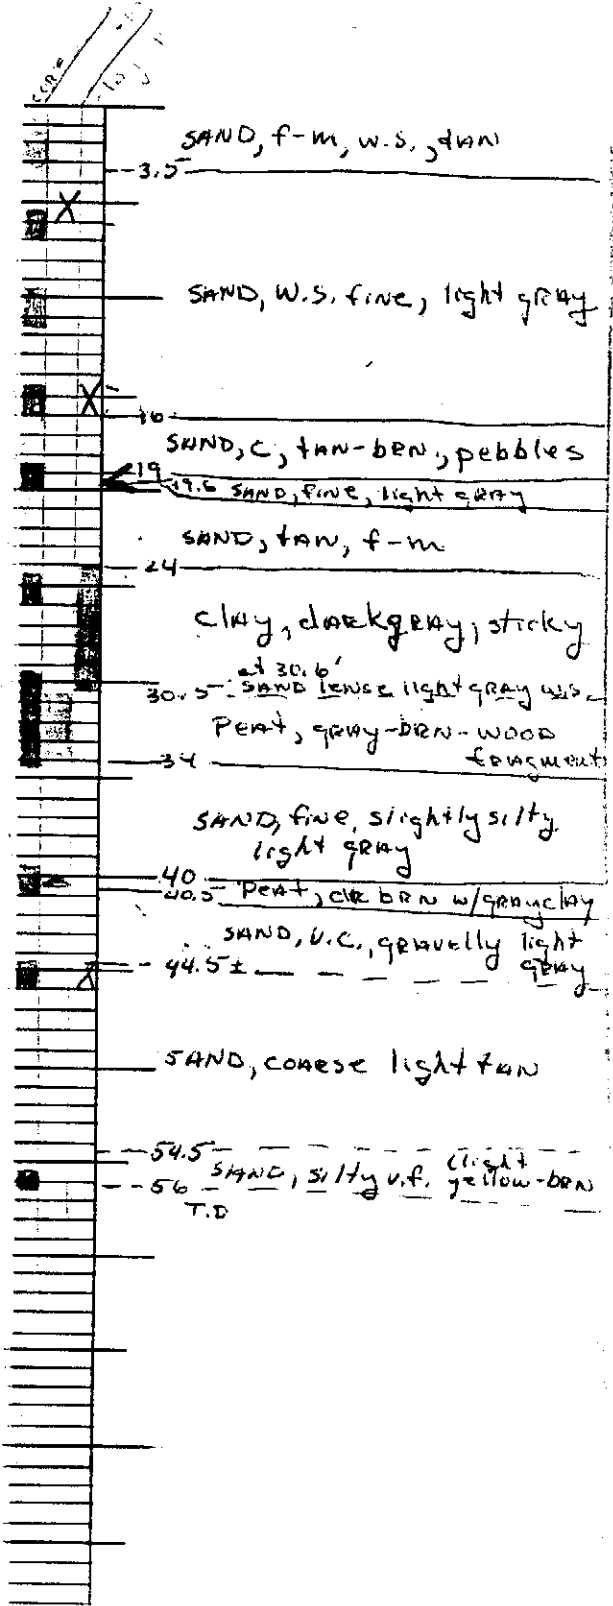 CORE
SAND, f-m, w.s., tAN
3.5
SAND, W.S. fine, light gRAy
16
SAND, C, tAN-brN, pebbles
19
19.6 SAND, fine, light gRAy
SAND, tAN, f-m
24
ClAy, dARkgRAy, sticky
at 30.6'
30.5 SAND leNse light gRAy w.s.
PeAt, gRAy-bRN-WOOD
fRAgments
34
SAND, fine, slightly silty
light gRAy
40
40.5 PeAt, dk bRN w/gRAy clAy
SAND, V.C., gRAvelly light
gRAy
44.5±
SAND, COARSe light tAN
54.5
SAND, silty v.f. (light
yellow-bRN
56
T.D